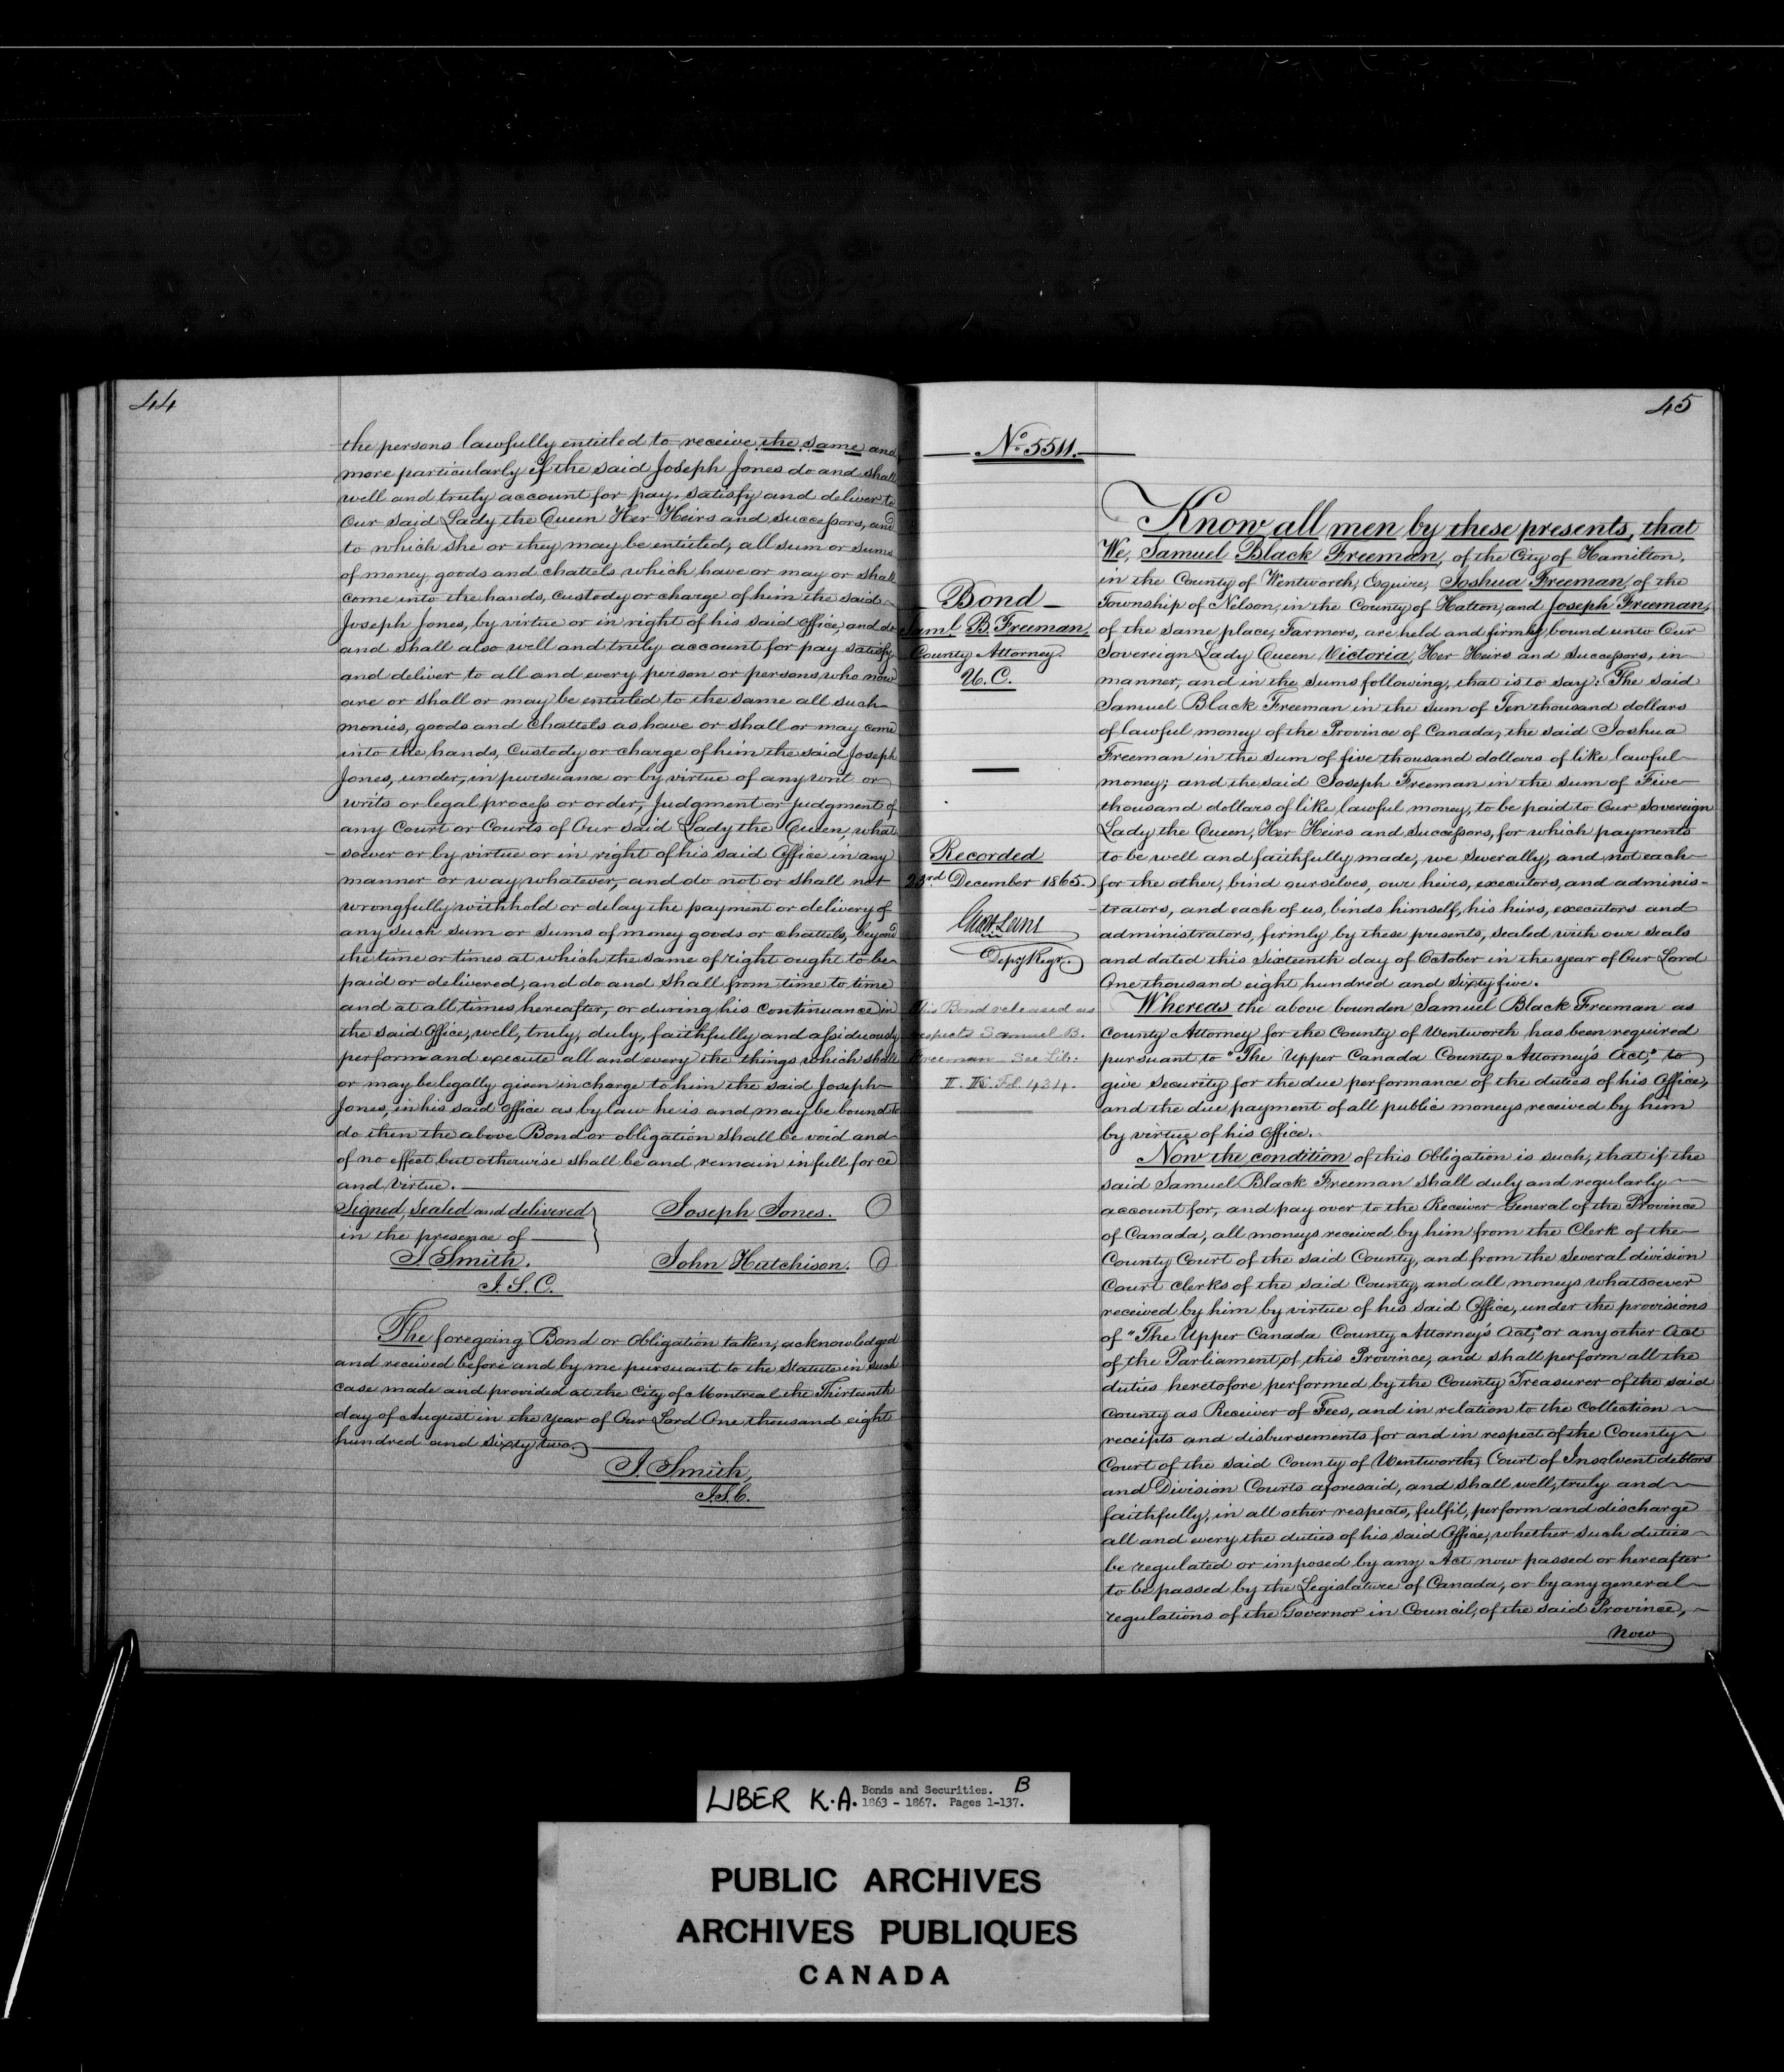 44
the persons lawfully entitled to receive the same and
more particularly if the said Joseph Jones do and shall
well and truly account for pay, satisfy and deliver to
Our said Lady the Queen Her Heirs and successors, and
to which she or they may be entitled, all sum or sums
of money, goods and chattels which have or may or shall
come into the hands, custody or charge of him the said
Joseph Jones, by virtue or in right of his said office, and do
and shall also well and truly account for pay satisfy
and deliver to all and every person or persons who now
are or shall or may be entitled to the same all such
monies, goods and Chattels as have or shall or may come
into the hands, Custody or charge of him the said Joseph
Jones, under, in pursuance or by virtue of any writ or
writs or legal process or order, Judgment or judgment of
any Court or Courts of Our said Lady the Queen, what
soever or by virtue or in right of his said Office in any
manner or way whatever, and do not or shall not
wrongfully withhold or delay the payment or delivery of
any such sum or sums of money goods or chattels, beyond
the time or times at which the same of right ought to be
paid or delivered, and do and shall from time to time
and at all times hereafter, or during his continuance in
the said Office, well, truly, duly, faithfully and assiduously
perform and execute all and every the things which shall
or may be legally given in charge to him the said Joseph
Jones, in his said office as by law he is and may be bound to
do then the above Bond or obligation shall be void and
of no effect but otherwise shall be and remain in full force
and virtue.
Signed, Sealed and delivered } Joseph Jones. O
in the presence of
J. Smith. John Hutchison. O
J.S.C.
The foregoing Bond or obligation taken, acknowledged
and received before and by me pursuant to the Statute in such
case made and provided at the City of Montreal the Thirteenth
day of August in the year of Our Lord One thousand eight
hundred and sixty two.
J. Smith,
J.S.C.
45
No. 5511.
Bond
Saml. B. Freeman,
County Attorney.
U.C.
Recorded
23rd December 1865.
Depy Regr.
This Bond released as
respects Samuel B.
Freeman See Lib:
Fol. 434.
Know all men by these presents, that
We, Samuel Black Freeman, of the City of Hamilton,
in the County of Wentworth, Esquire, Joshua Freeman, of the
Township of Nelson, in the County of Halton, and Joseph Freeman,
of the same place, Farmers, are held and firmly bound unto Our
Sovereign Lady Queen Victoria, Her Heirs and Successors, in
manner, and in the sums following, that is to say: The said
Samuel Black Freeman in the sum of Ten thousand dollars
of lawful money of the Province of Canada, the said Joshua
Freeman in the sum of five thousand dollars of like lawful
money; and the said Joseph Freeman in the sum of Five
thousand dollars of like lawful money, to be paid to Our Sovereign
Lady the Queen, Her Heirs and Successors, for which payments
to be well and faithfully made, we severally, and not each
for the other, bind ourselves, our heirs, executors, and adminis-
trators, and each of us, binds himself, his heirs, executors and
administrators, firmly by these presents, sealed with our seals
and dated this Sixteenth day of October in the year of Our Lord
One thousand eight hundred and Sixty five.
Whereas the above bounden Samuel Black Freeman as
County Attorney for the County of Wentworth has been required
pursuant to "The Upper Canada County Attorney's Act," to
give security for the due performance of the duties of his Office,
and the due payment of all public moneys received by him
by virtue of his Office.
Now the condition of this Obligation is such, that if the
said Samuel Black Freeman shall duly and regularly
account for, and pay over to the Receiver General of the Province
of Canada, all moneys received by him from the Clerk of the
County Court of the said County, and from the several division
Court Clerks of the said County, and all moneys whatsoever
received by him by virtue of his said Office, under the provisions
of "The Upper Canada County Attorney's Act," or any other Act
of the Parliament, of this Province, and shall perform all the
duties heretofore performed by the County Treasurer of the said
County as Receiver of Fees, and in relation to the Collection
receipts and disbursements for and in respect of the County
Court of the said County of Wentworth, Court of Insolvent debtors
and Division Courts aforesaid, and shall well, truly and
faithfully, in all other respects, fulfil, perform and discharge
all and every the duties of his said Office, whether such duties
be regulated or imposed by any Act now passed or hereafter
to be passed by the Legislature of Canada, or by any general
regulations of the Governor in Council, of the said Province,
Now
LIBER K.A. Bonds and Securities. B
1863 - 1867. Pages 1-137.
PUBLIC ARCHIVES
ARCHIVES PUBLIQUES
CANADA